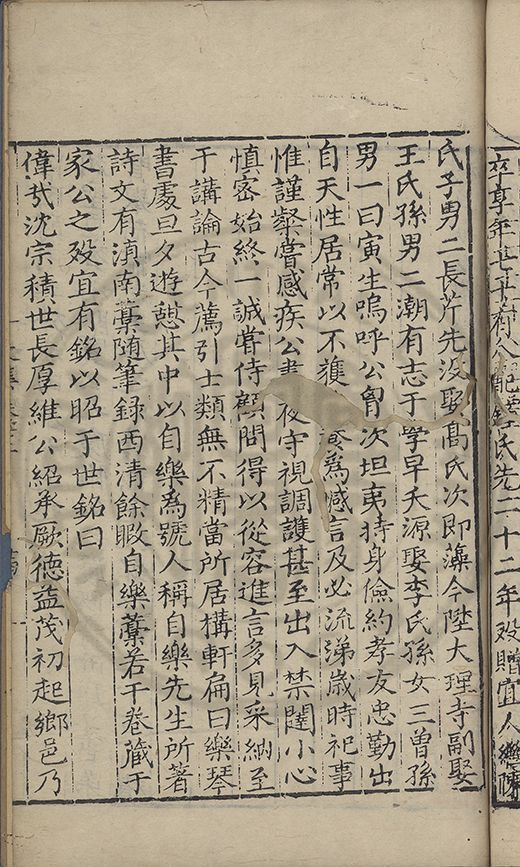 卒享年七十有八配 氏先二十二年歿贈宜人繼陳
氏子男二長芹先沒娶髙氏次即藻今陞大理寺副娶
王氏孫男二潮有志于學早夭源娶李氏孫女三曽孫
男一曰寅生嗚呼公胷次坦夷持身儉約孝友忠勤出
自天性居常以不獲 為憾言及必流涕歳時祀事
惟謹粲嘗感疾公晝夜守視調護甚至出入禁闥小心
慎密始終一誠甞侍顧問得以從容進言多見采納至
于講論古今薦引士類無不精當所居構軒扁曰樂琴
書處旦夕遊憩其中以自樂為號人稱自樂先生所著
詩文有滇南藁隨筆録西清餘暇自樂藁若干卷蔵于
家公之歿宜有銘以昭于世銘曰
偉㢤沈宗積世長厚維公紹承厥徳益茂初起鄉邑乃